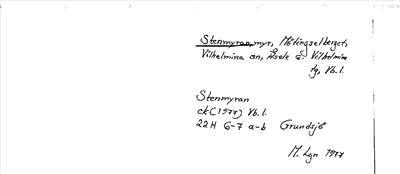 Stenmyran, myr, Mötingselberget,
Vilhelmina sn, Åsele o. Vilhelmina
tg, Vb. l.
Stenmyran
ek (1977) Vb. l.
22H 6-7 a-b Grundsjö
M. Lgn 1977